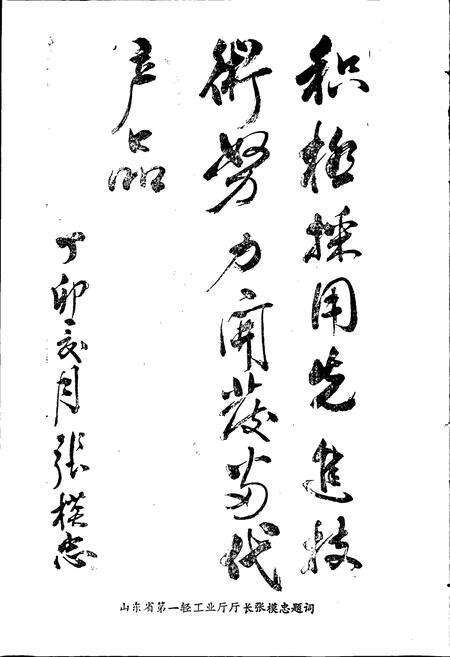 积极採用先進技
術努力開發当代
产品
丁卯亥月 張模忠
山东省第一轻工业厅厅长张模忠题词